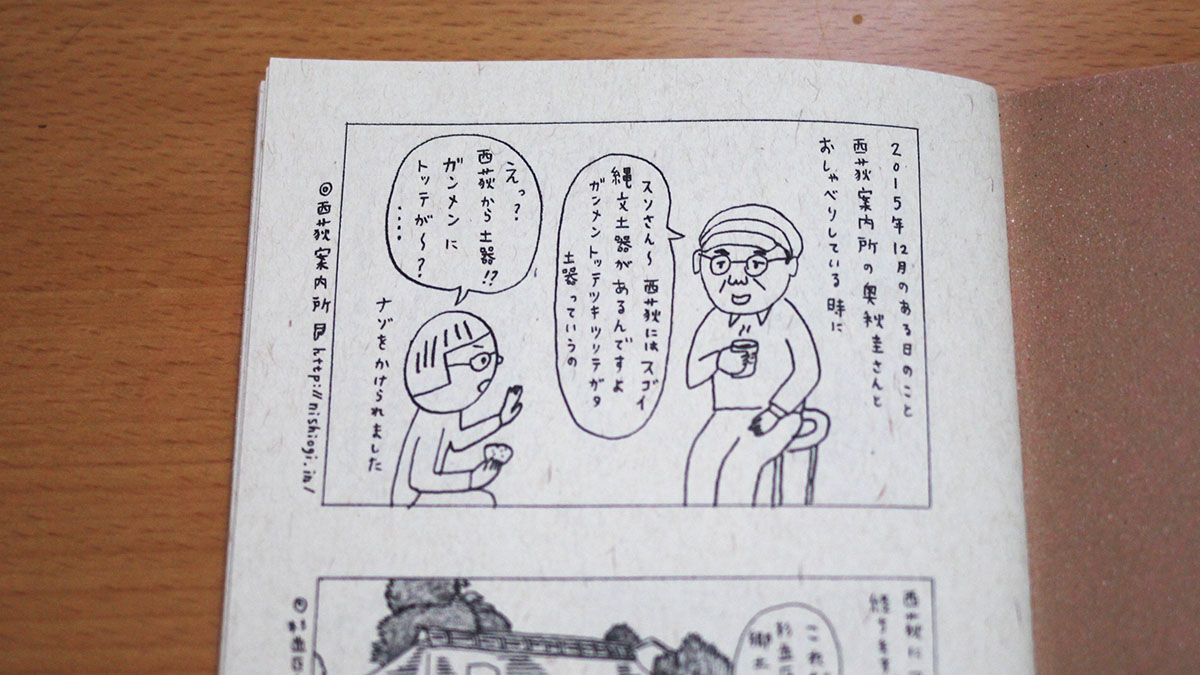 2015年12月のある日のこと
西荻案内所の奥秋圭さんと
おしゃべりしている時に
スソさん〜西荻にはスゴイ
縄文土器があるんですよ
ガンメントッテツキツリテガタ
土器っていうの
えっ?
西荻から土器!?
ガンメンに
トッテが〜?
....
ナゾをかけられました
◎西荻案内所 http://nishiogi.in/
西荻に
これ